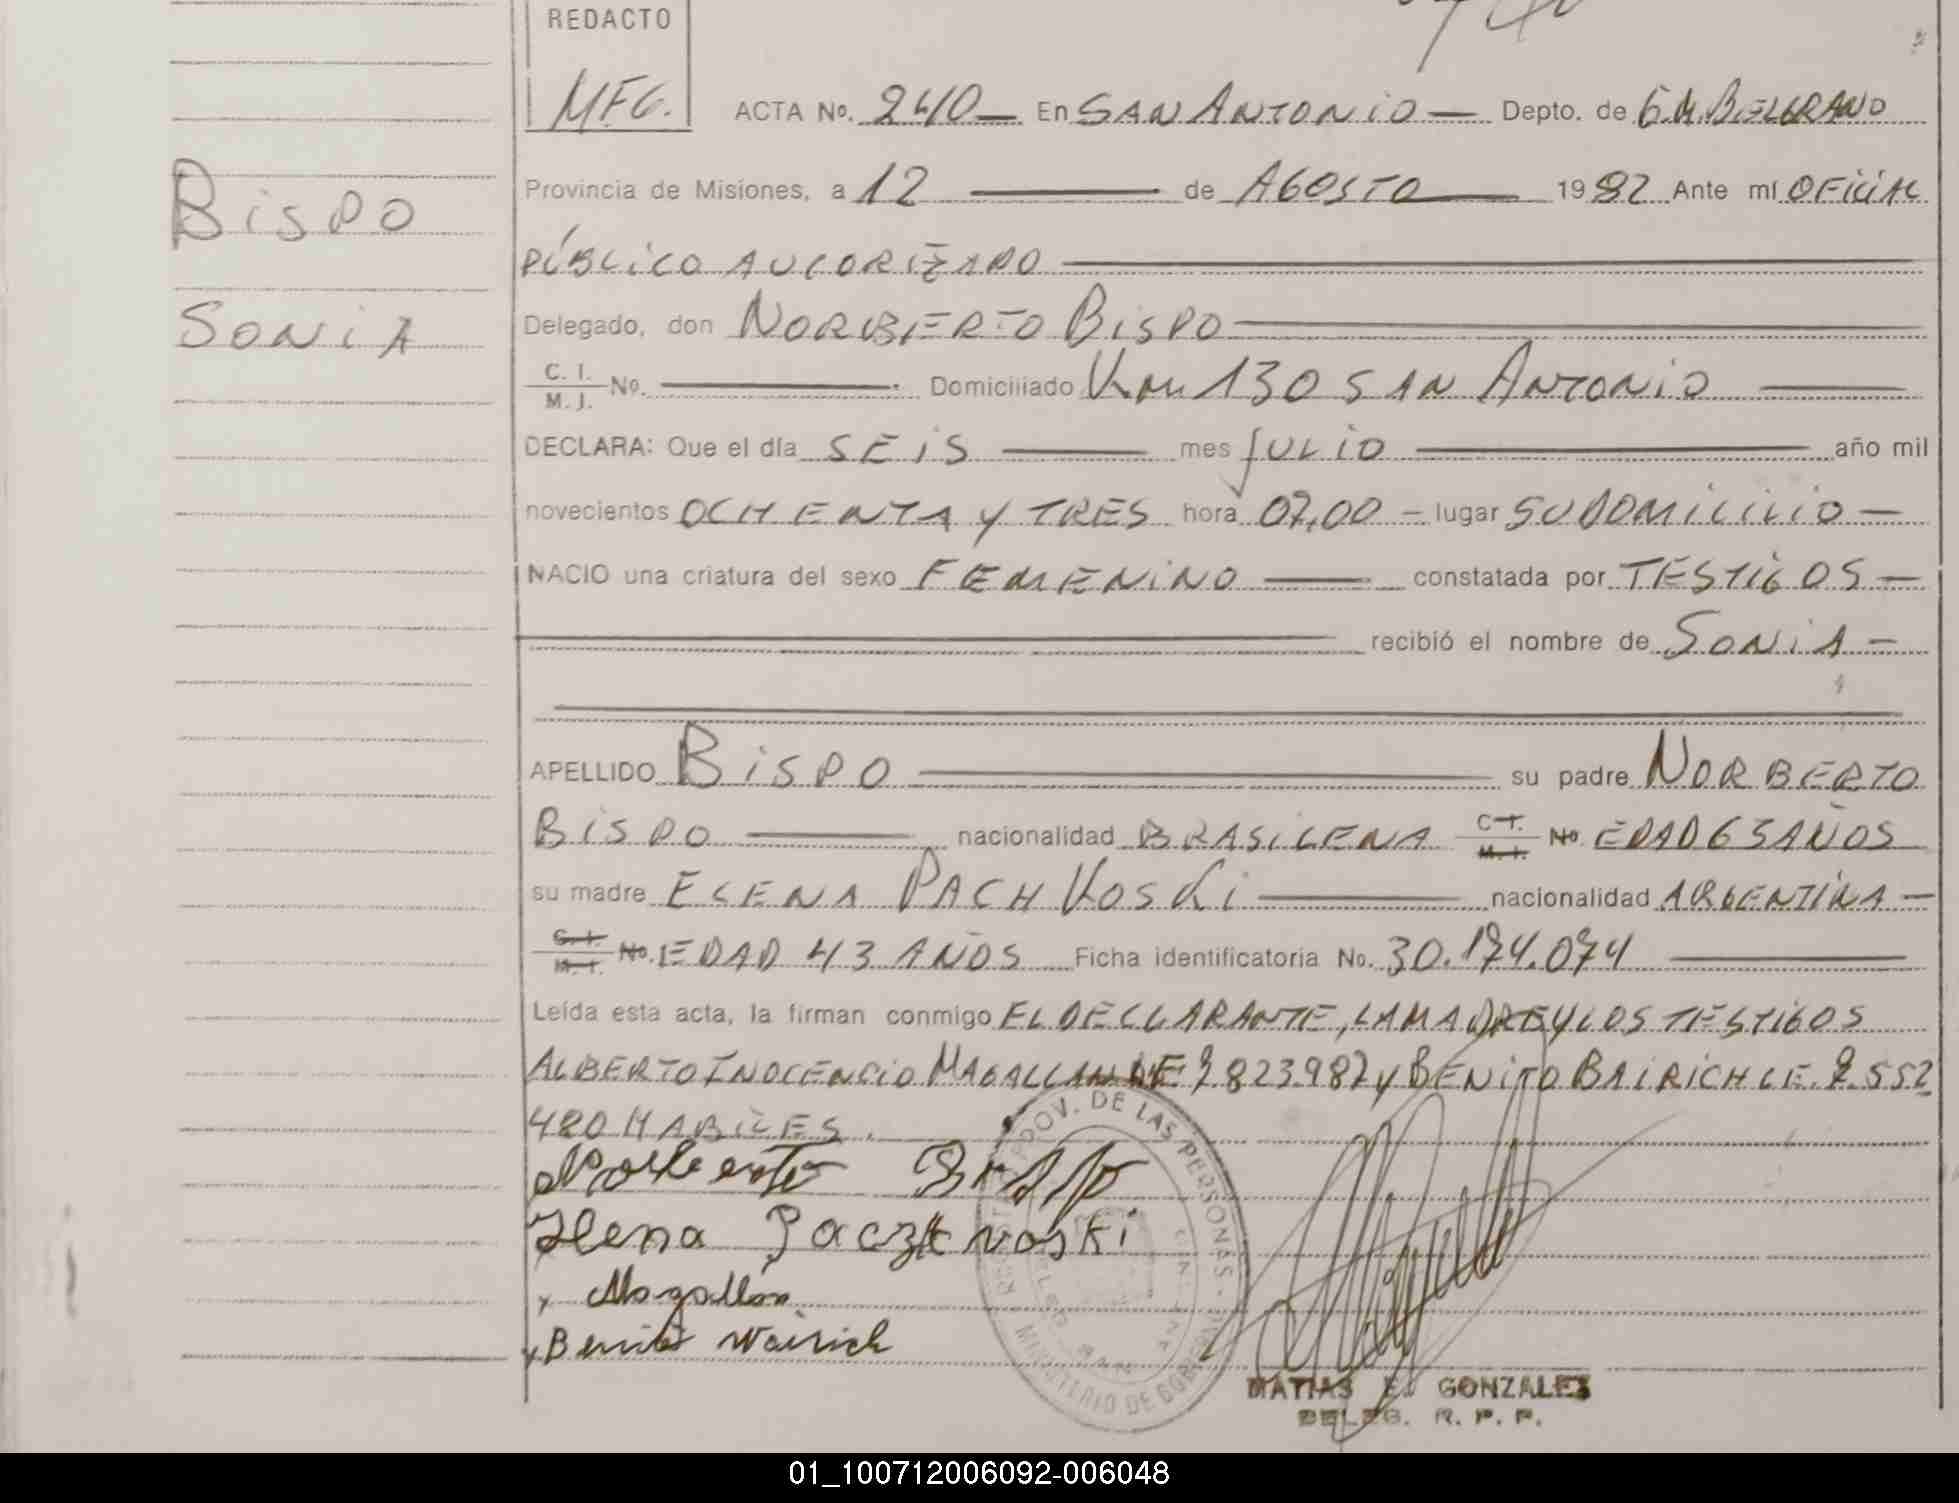 REDACTO
MFG.
ACTA No. 240 En SAN ANTONIO Depto. de G.M. BELGRANO
Provincia de Misiones, a 12 de AGOSTO 1982 Ante mí OFICIAL
PÚBLICO AUTORIZADO
Bispo
Delegado, don NORBERTO BISPO
SONIA
C. I.
M. J. No. Domiciliado Km 130 SAN ANTONIO
DECLARA: Que el día SEIS mes JULIO año mil
novecientos OCHENTA Y TRES hora 07,00 - lugar SU DOMICILIO
NACIO una criatura del sexo FEMENINO constatada por TESTIGOS
recibió el nombre de SONIA
APELLIDO BISPO su padre NORBERTO
BISPO nacionalidad BRASILENA C.I. M.I. No. EDAD 63 AÑOS
su madre ELENA PACHKOSKI nacionalidad ARGENTINA
C.I. M.I. No. EDAD 43 AÑOS Ficha identificatoria No. 30.174.074
Leída esta acta, la firman conmigo EL DECLARANTE, LA MADRE Y LOS TESTIGOS
ALBERTO INOCENCIO MAGALLAN DE 7.823.987 Y BENITO BAIRICH LE. 7.552
480 HABILES.
Norberto Bispo
Elena Paczkoski
Magallan
Benito Wairich
PROV. DE LAS PERSONAS
MINISTERIO DE GOB
MATIAS E. GONZALEZ
DELEG. R. P. P.
01_100712006092-006048